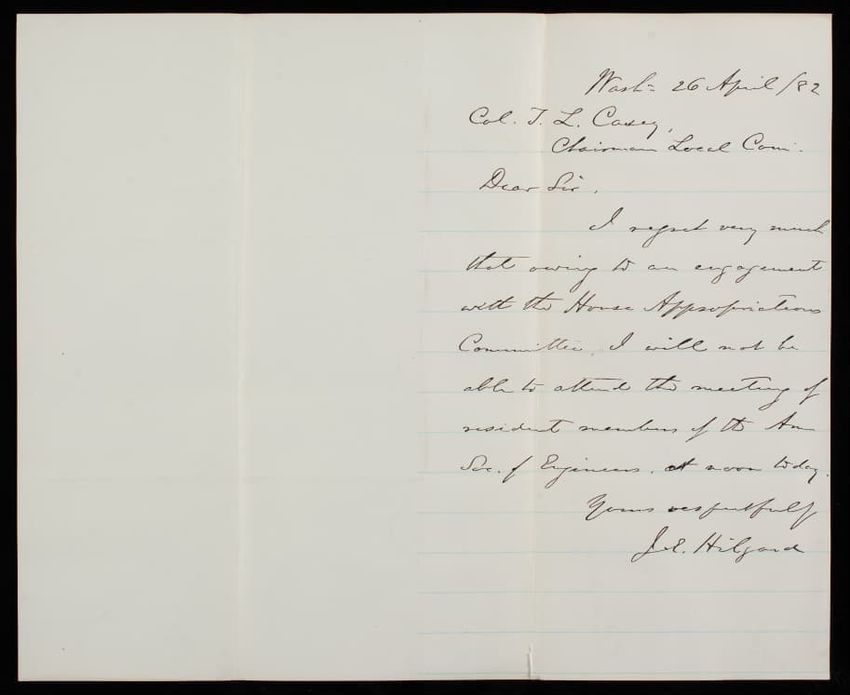 Wash= 26 April /82
Col. T. L. Casey,
Chairman Local Com.
Dear Sir,
I regret very much
that owing to an engagement
with the House Appropriations
Committee, I will not be
able to attend the meeting of
resident members of the Am
Soc. of Engineers, at noon today.
Yours respectfully
J. E. Hilgard